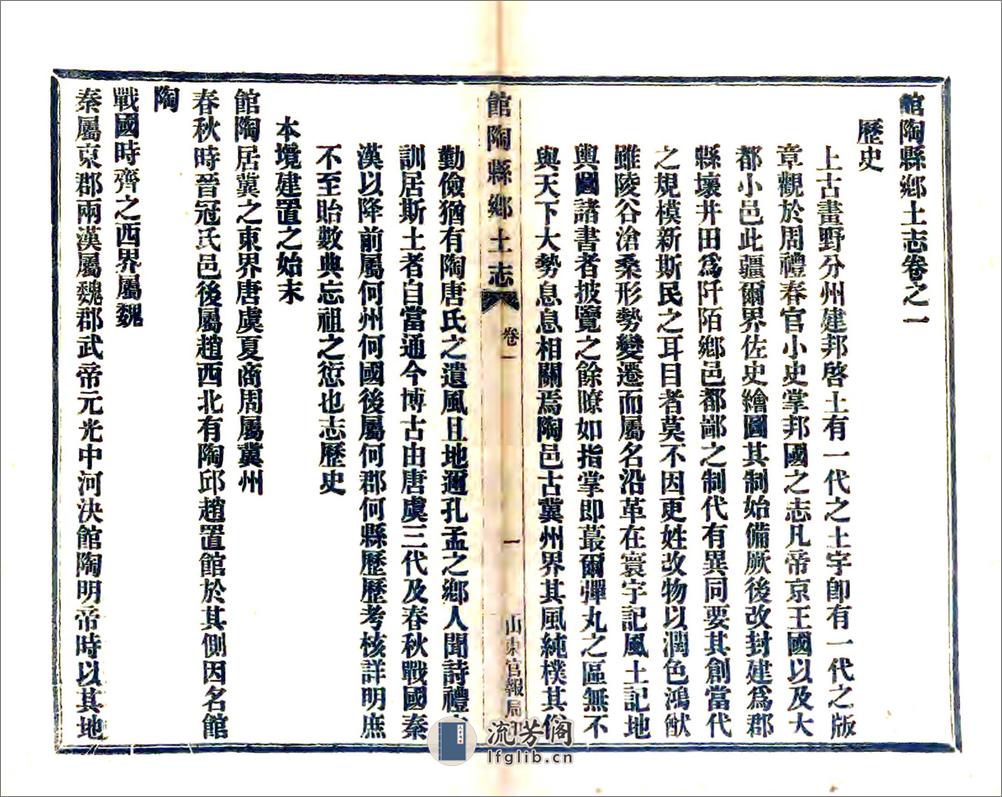 館陶縣鄉土志卷之一
歷史
上古畫野分州建邦啓土有一代之土宇卽有一代之版
章觀於周禮春官小史掌邦國之志凡帝京王國以及大
都小邑此疆爾界佐史繪圖其制始備厥後改封建爲郡
縣壞井田爲阡陌鄉邑都鄙之制代有異同要其創當代
之規模新斯民之耳目者莫不因更姓改物以潤色鴻猷
雖陵谷滄桑形勢變遷而屬名沿革在寰宇記風土記地
輿圖諸書者披覽之餘瞭如指掌即蕞爾彈丸之區無不
與天下大勢息息相關焉陶邑古冀州界其風純樸其
館陶縣鄉土志
卷一
一
山東官報局
勤儉猶有陶唐氏之遺風且地邇孔孟之鄉人聞詩禮
訓居斯土者自當通今博古由唐虞三代及春秋戰國秦
漢以降前屬何州何國後屬何郡何縣歷歷考核詳明庶
不至貽數典忘祖之愆也志歷史
本境建置之始末
館陶居冀之東界唐虞夏商周屬冀州
春秋時晉冠氏邑後屬趙西北有陶邱趙置館於其側因名館
陶
戰國時齊之西界屬魏
秦屬東郡兩漢屬魏郡武帝元光中河決館陶明帝時以其地
流芳阁
lfglib.cn